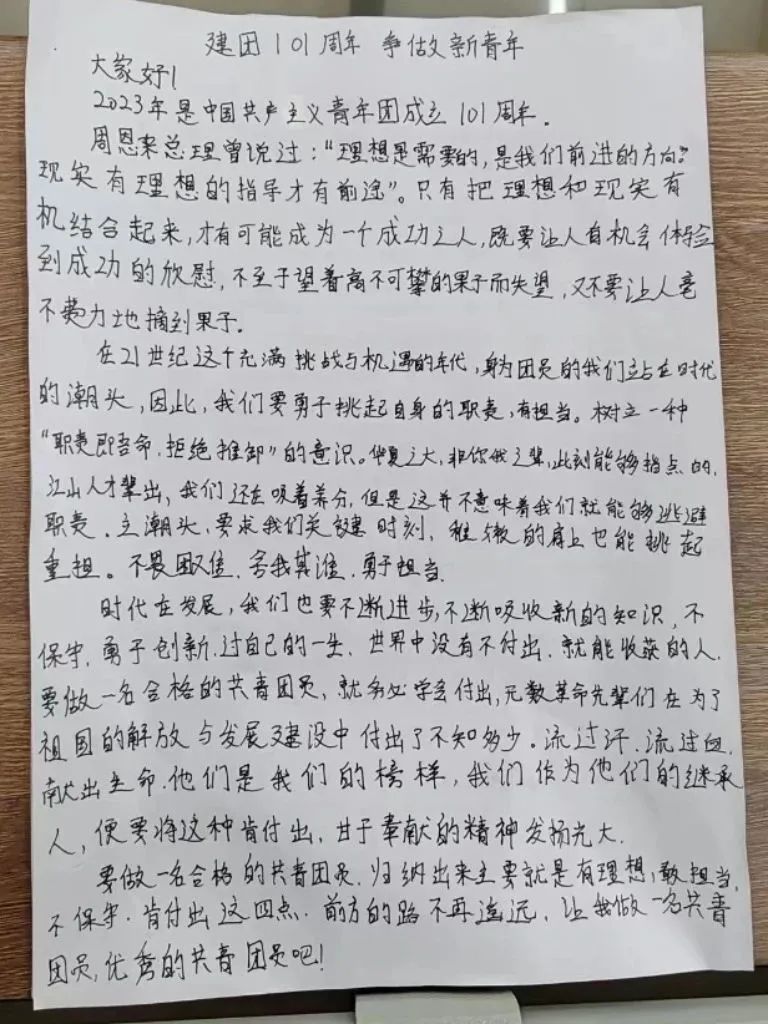 建团101周年 争做新青年
大家好!
2023年是中国共产主义青年团成立101周年.
周恩来总理曾说过:"理想是需要的,是我们前进的方向。
现实有理想的指导才有前途"。只有把理想和现实有
机结合起来,才有可能成为一个成功之人,既要让人有机会体验
到成功的欣慰,不至于望着高不可攀的果子而失望,又不要让人毫
不费力地摘到果子.
在21世纪这个充满挑战与机遇的年代,身为团员的我们立站在时代
的潮头,因此,我们要勇于挑起自身的职责,有担当。树立一种
"职责即吾命.拒绝推卸"的意识。华夏之大,非你我之辈,此刻能够指点的.
江山人才辈出,我们还在吸着养分,但是这并不意味着我们就能够逃避
职责.立潮头、要求我们关键时刻、稚嫩的肩上也能挑起
重担。不畏困难.舍我其谁.勇于担当.
时代在发展,我们也要不断进步,不断吸收新的知识,不
保守.勇于创新.过自己的一生.世界中没有不付出.就能收获的人.
要做一名合格的共青团员,就务必学会付出,无数革命先辈们在为了
祖国的解放与发展建设中付出了不知多少.流过汗.流过血.
献出生命.他们是我们的榜样,我们作为他们的继承
人,便要将这种肯付出、甘于奉献的精神发扬光大.
要做一名合格的共青团员.归纳出来主要就是有理想,敢担当,
不保守.肯付出这四点.前方的路不再遥远、让我做一名共青
团员,优秀的共青团员吧!